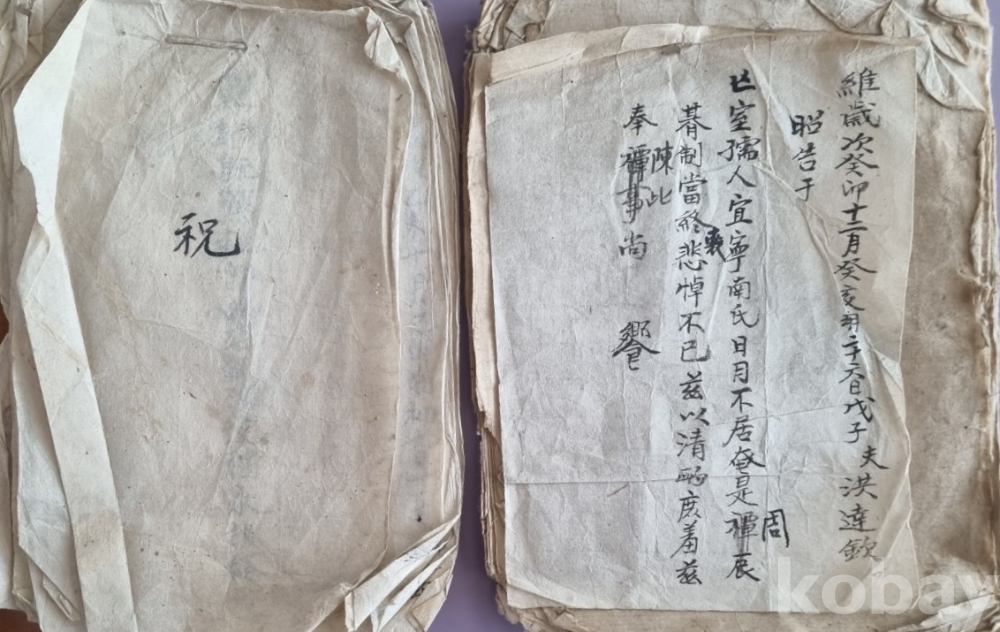 祝
維歲次癸卯十二月癸亥朔二十六日戊子夫洪達欽
昭告于
亡室孺人宜寧南氏日月不居奄是禫辰
周
朞制當終悲悼不已玆以清酌庶羞玆
喪
陳此
奉禫事尚
饗
kobay